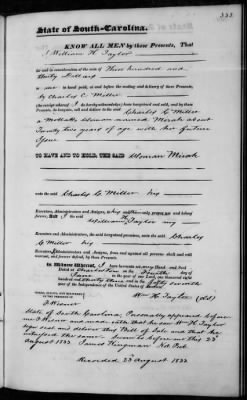 333.
State of South-Carolina.
KNOW ALL MEN by these Presents, That
I William H. Taylor
for and in consideration of the sum of Three hundred and
thirty Dollars
to me in hand paid, at and before the sealing and delivery of these Presents,
by Charles C. Miller
(the receipt whereof I do hereby acknowledge) have bargained and sold, and by these
Presents, do bargain, sell and deliver to the said Charles C. Miller
a Mullatto Woman named Mirah about
Twenty two years of age with her future
Issue
TO HAVE AND TO HOLD, THE SAID Woman Mirah
unto the said Charles C. Miller his
Executors, Administrators and Assigns, to his and their only proper use and behoof
forever. And I the said William H. Taylor my
Executors and Administrators, the said bargained premises, unto the said Charles
C. Miller his
Executors, Administrators and Assigns, from and against all persons shall and will
warrant, and forever defend, by these Presents.
In Witness Whereof, I have hereunto set my Hand and Seal
Dated at Charleston on the Fourth day of
June in the year of our Lord, one thousand eight
hundred and thirty three and in the fifty seventh
year of the Independence of the United States of America.
SIGNED, SEALED AND DELIVERED
IN THE PRESENCE OF
Wm H. Taylor (LS)
State of South Carolina; Personally appeared before
me and made oath that he saw Wm H. Taylor
sign seal and deliver this Bill of Sale and that he
witnessed the same. Sworn to before me this 23d
August 1833. James Kingman Not. Pub.
Recorded 23d August 1833